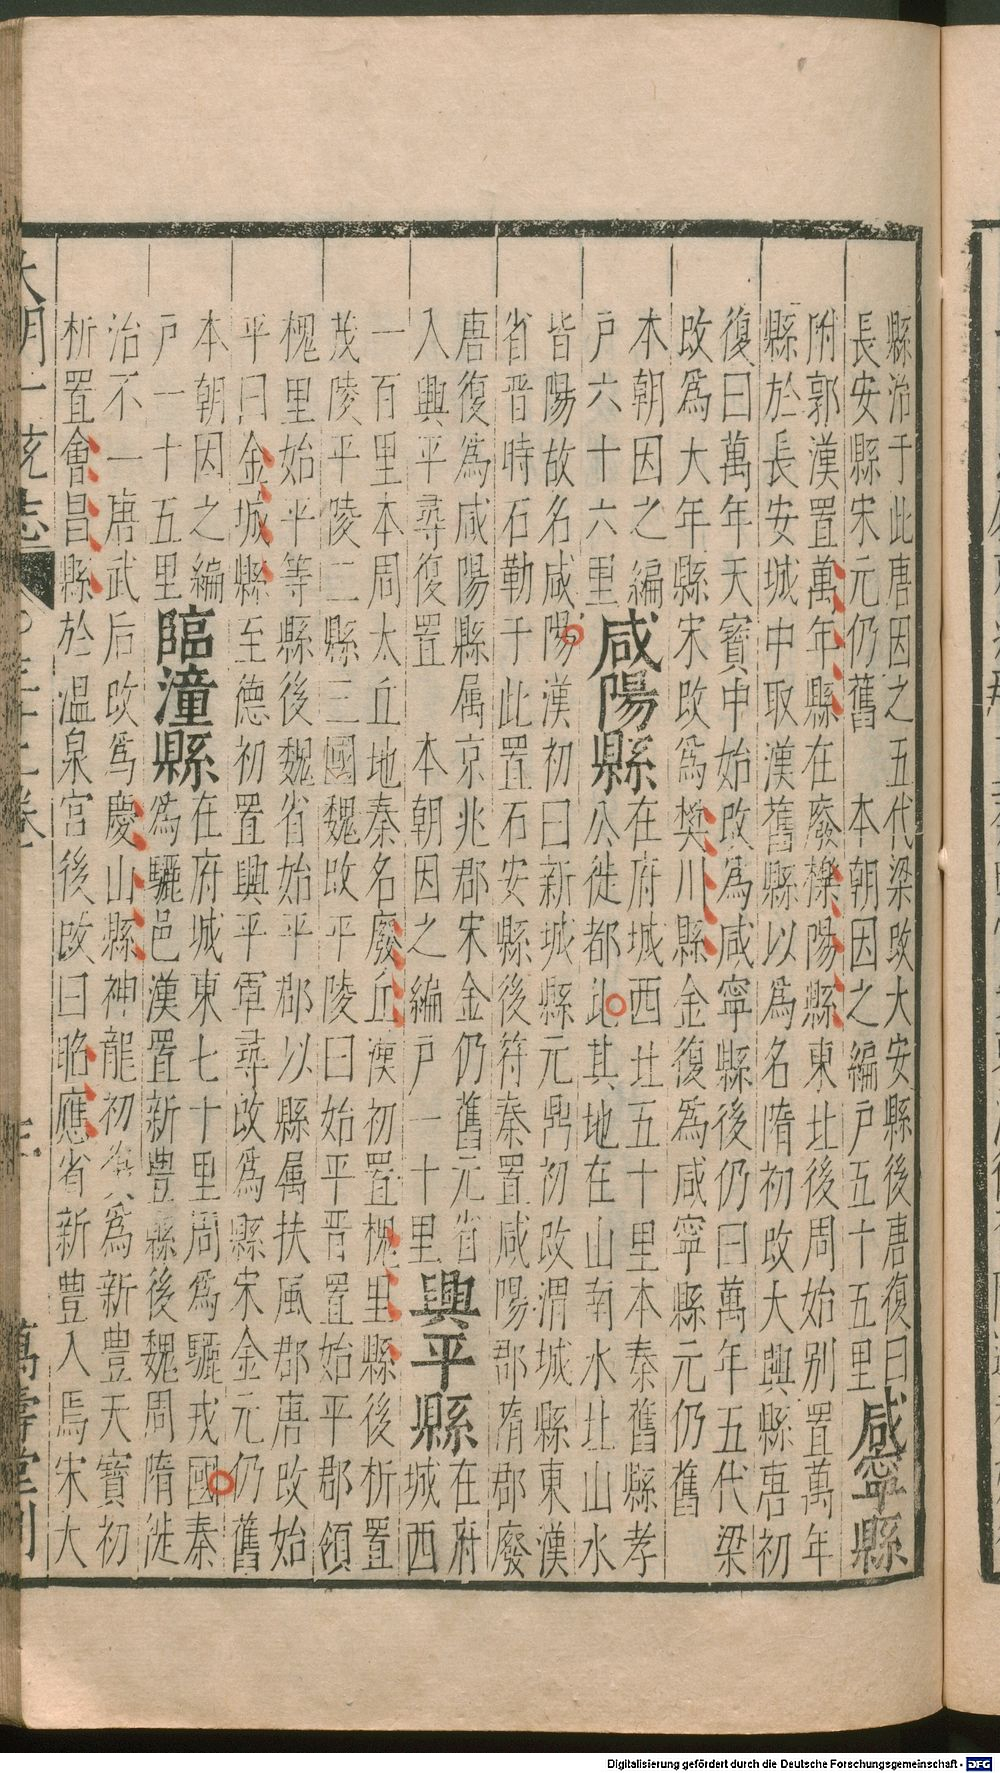 縣治于此唐因之五代梁改大安縣後唐復曰
長安縣宋元仍舊　本朝因之編户五十五里咸寧縣
附郭漢置萬年縣在廢櫟陽縣東北後周始別置萬年
縣於長安城中取漢舊縣以爲名隋初改大興縣唐初
復曰萬年天寳中始改爲咸寧縣後仍曰萬年五代梁
改爲大年縣宋改爲樊川縣金復爲咸寧縣元仍舊
本朝因之編
户六十六里咸陽縣
在府城西北五十里本秦舊縣孝
公徙都此其地在山南水北山水
皆陽故名咸陽漢初曰新城縣元鼎初改渭城縣東漢
省晋時石勒于此置石安縣後苻秦置咸陽郡隋郡廢
唐復爲咸陽縣属京兆郡宋金仍舊元省
入興平尋復置　本朝因之編户一十里興平縣
在府
城西
一百里本周太丘地秦名廢丘漢初置槐里縣後析置
茂陵平陵二縣三國魏改平陵曰始平晋置始平郡領
槐里始平等縣後魏省始平郡以縣属扶風郡唐改始
平曰金城縣至德初置興平軍尋改爲縣宋金元仍舊
本朝因之編
户一十五里臨潼縣
在府城東七十里周爲驪戎國秦
爲驪邑漢置新豊縣後魏周隋徙
治不一唐武后改爲慶山縣神龍初復爲新豊天寳初
析置會昌縣於温泉宮後改曰昭應省新豊入焉宋大
大明一統志
卷
萬壽堂刊
Digitalisierung gefördert durch die Deutsche Forschungsgemeinschaft - DFG